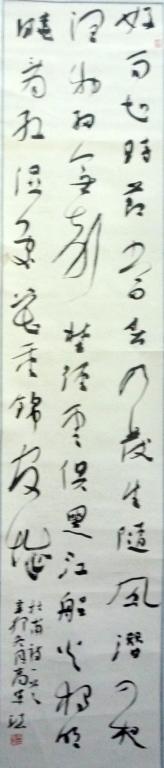 好雨知時節當春乃發生隨風潛入夜
潤物細無聲野徑雲俱黑江船火獨明
曉看紅濕處花重錦官城
杜甫詩一首
辛卯